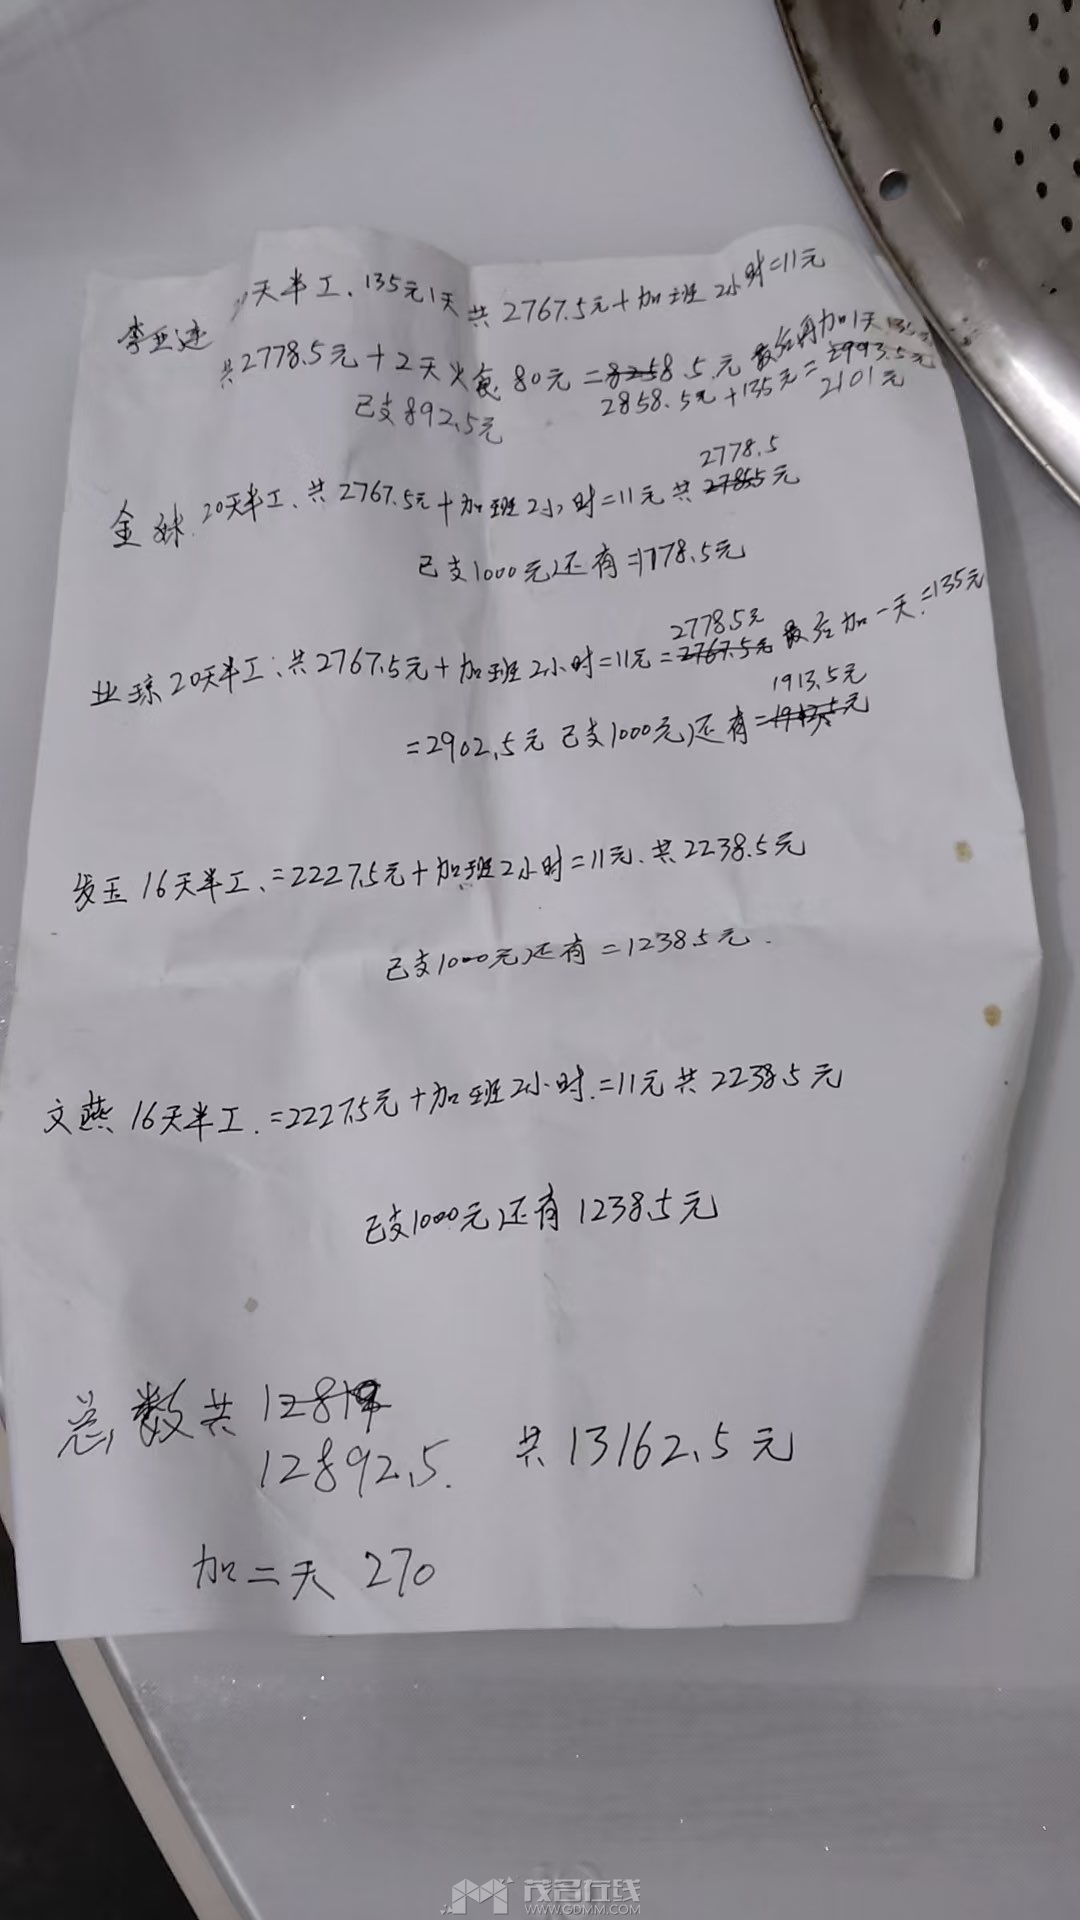 天半工、135元1天 共2767.5元+加班2小时=11元
李亚连 共2778.5元+2天火食80元=8258.5元 最后再加1天135元
2858.5元+135元=2993.5元
已支892.5元 2101元
2778.5
金妹 20天半工、共2767.5元+加班2小时=11元共27855元
已支1000元还有=1778.5元
2778.5元
亚琼20天半工:共2767.5元+加班2小时=11元=2767.5元 最后加一天=135元
1913.5元
=2902.5元 已支1000元还有=元
16天半工、=2227.5元+加班2小时=11元、共2238.5元
已支1000元还有=1238.5元.
文燕 16天半工.=2227.5元+加班2小时.=11元共2238.5元
已支1000元还有1238.5元
总数共
12892.5. 共13162.5元
加二天 270
茂名在线
WWW.GDMM.COM